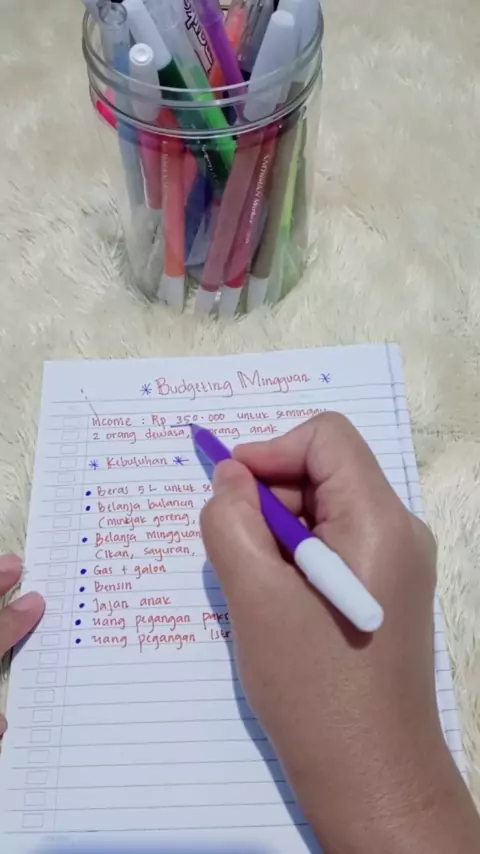 * Budgeting Mingguan *
Income : Rp 350.000 untuk seminggu
2 orang dewasa, orang anak
* Kebutuhan *
• Beras 5 L untuk
• Belanja bulanan
(minyak goreng,
• Belanja mingguan
(Ikan, sayuran,
• Gas + galon
• Bensin
• Jajan anak
• uang pegangan
• uang pegangan